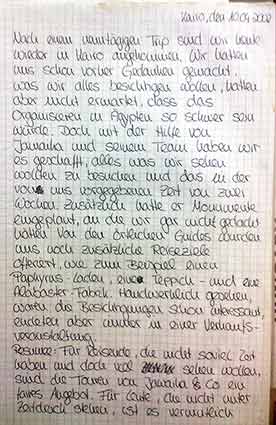 Kairo, den 10.04.2002
Nach einem neuntägigen Trip sind wir heute
wieder in Kairo angekommen. Wir hatten
uns schon vorher Gedanken gemacht,
was wir alles besichtigen wollen, hatten
aber nicht erwartet, dass das
Organisieren in Ägypten so schwer sein
würde. Doch mit der Hilfe von
und seinem Team haben wir
es geschafft, alles was wir sehen
wollten zu besuchen und das in der
von uns vorgegebenen Zeit von zwei
Wochen. Zusätzlich hatte er Monumente
eingeplant, an die wir gar nicht gedacht
hatten. Von den örtlichen Guides wurden
uns noch zusätzliche Reiseziele
offeriert, wie zum Beispiel einen
Paphyrus-Laden, eine Teppich- und eine
Alabaster Fabrik. Handwerklich gesehen,
waren die Besichtigungen schon interessant,
endeten aber immer in einer Verkaufs-
veranstaltung.
Resumee: Für Reisende, die nicht soviel Zeit
haben und doch viel sehen wollen,
sind die Touren von & Co ein
faires Angebot. Für Leute, die nicht unter
Zeitdruck stehen, ist es vermutlich